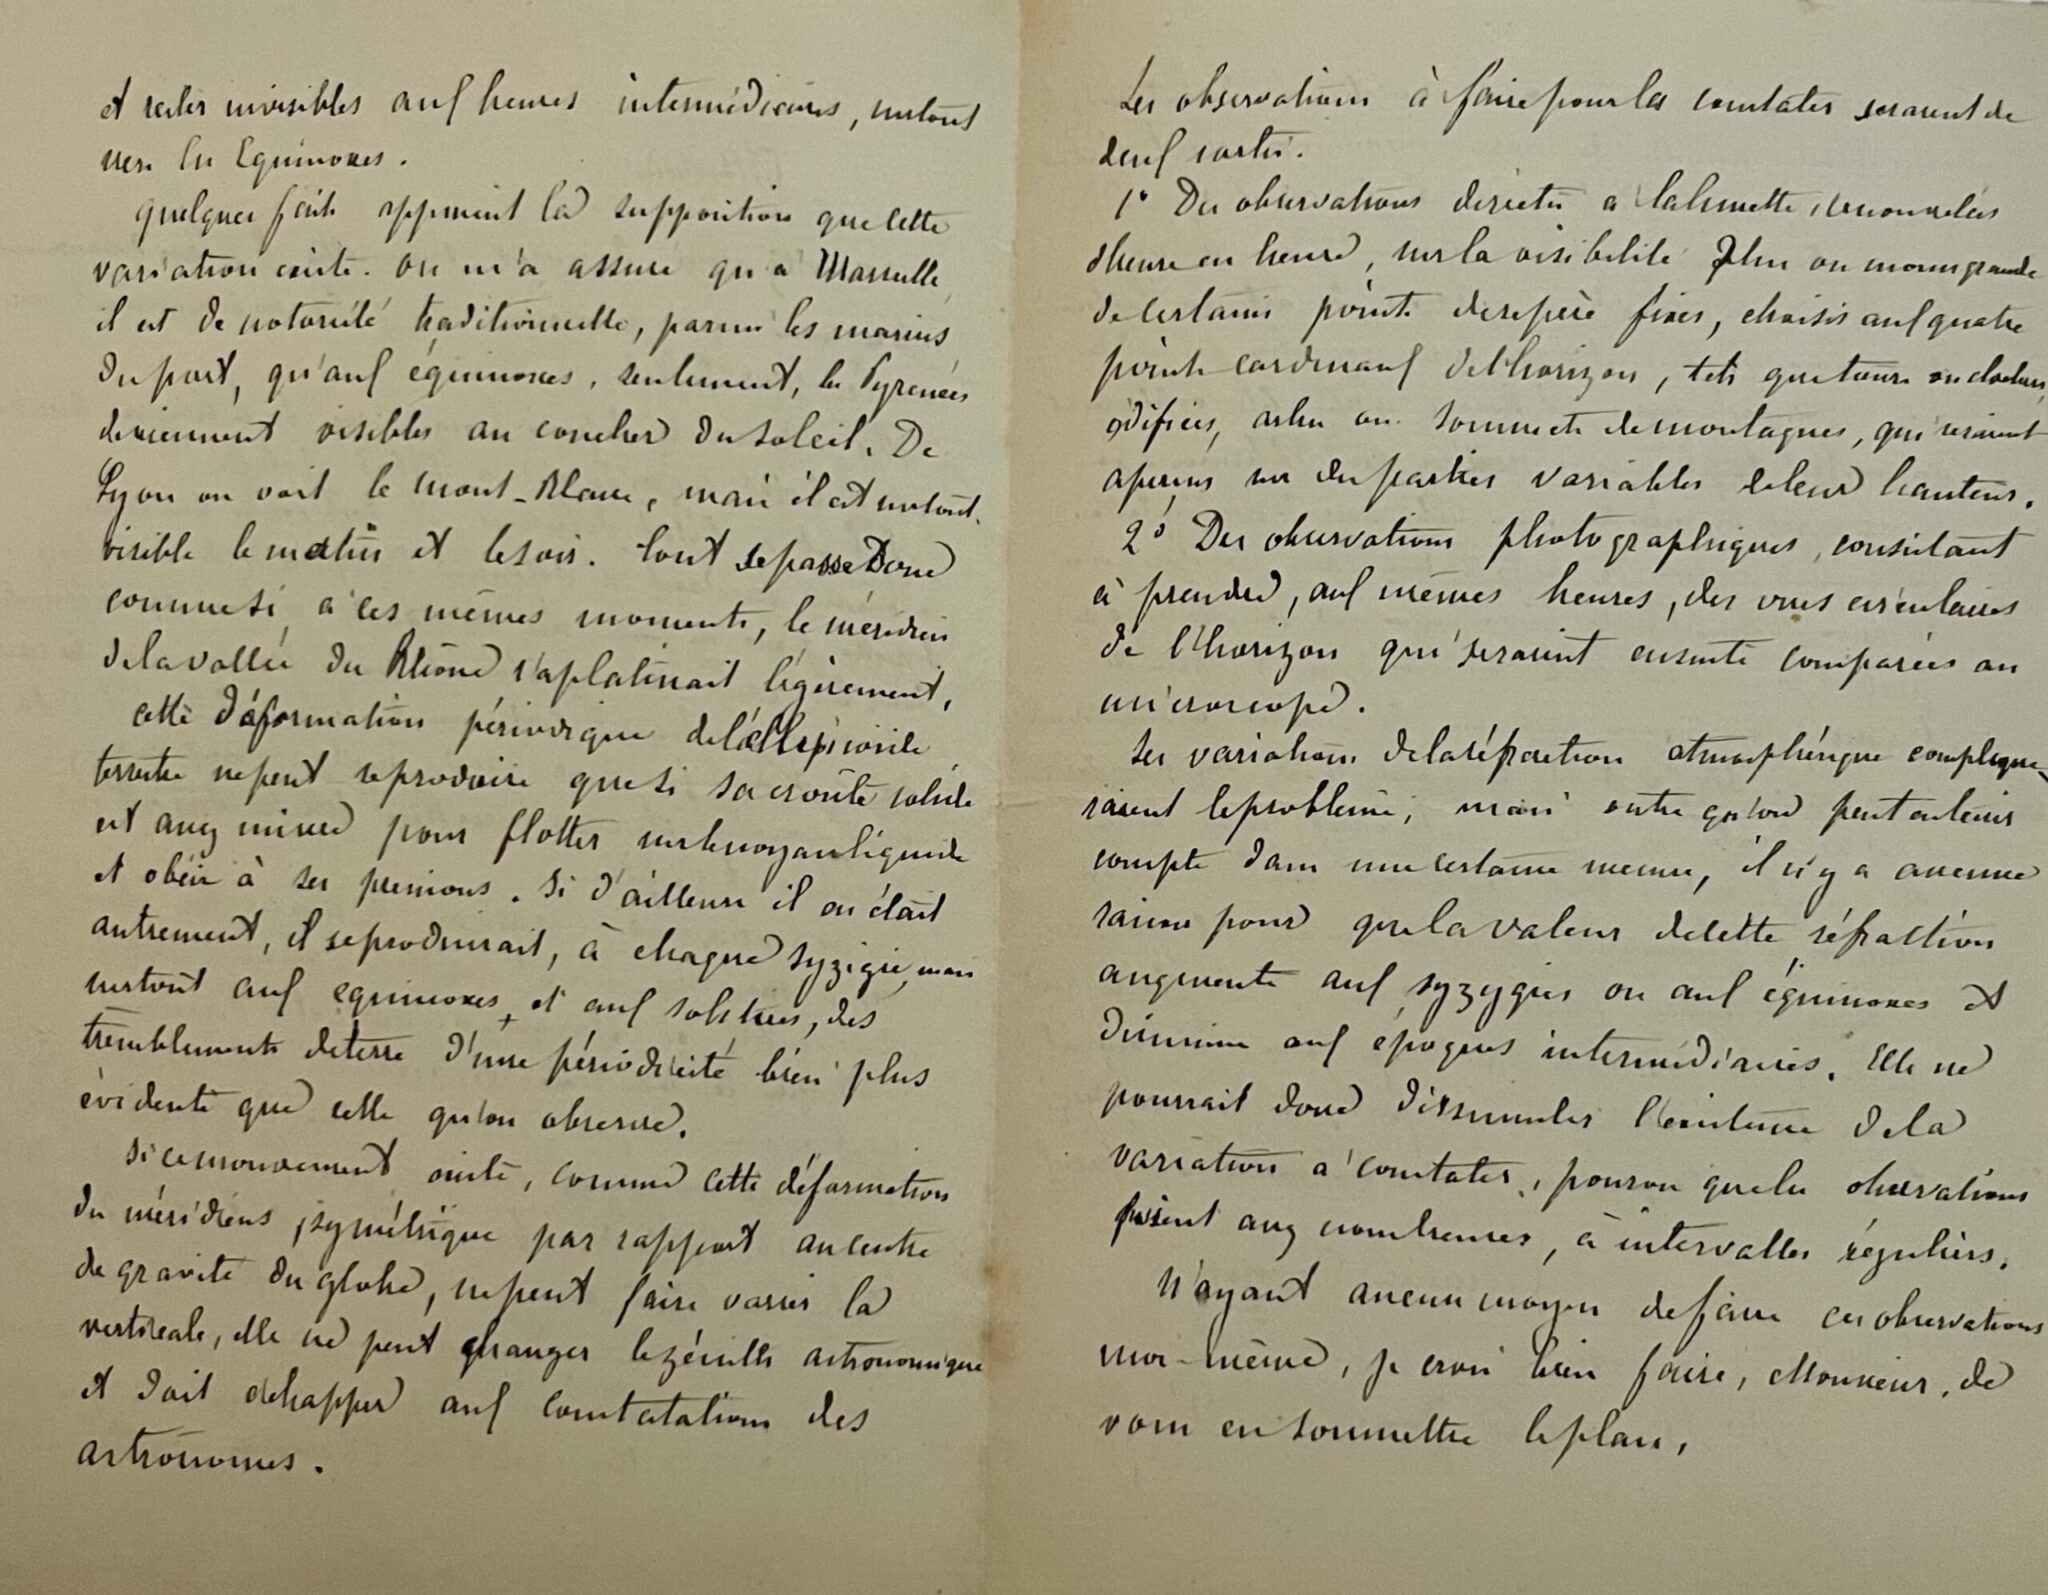 et rester invisibles aux heures intermédiaires, surtout
vers les Equinoxes.
quelques faits appuient la supposition que cette
variation existe. On m'a assuré qu'à Marseille
il est de notoriété traditionnelle, parmi les marins
du port, qu'aux équinoxes, seulement, les Pyrenées
deviennent visibles au coucher du soleil. De
Lyon on voit le Mont-Blanc, mais il est surtout
visible le matin et le soir. tout se passe Donc
comme si, à ces mêmes moments, le méridien
de la vallée du Rhône s'aplatissait légèrement,
cette déformation périodique de l'éllipsoïde
terrestre ne peut se produire que si sa croûte solide
est assez mince pour flotter sur le noyau liquide
et obéir à ses pressions. Si d'ailleurs il en était
autrement, il se produirait, à chaque syzigie, mais
surtout aux equinoxes, et aux solstices, des
tremblements de terre d'une périodicité bien plus
évidente que celle qu'on observe.
Si ce mouvement existe, comme cette déformation
du méridiens, symétrique par rapport au centre
de gravité du globe, ne peut faire varier la
verticale, elle ne peut changer le zénith astronomique
et doit échapper aux constatations des
astronomes.
Les observations à faire pour la constater seraient de
deux sortes.
1° Des observations directes a la lunette, renouvelées
d'heure en heure, sur la visibilité Plus ou moins grande
de certains points de repère fixes, choisis aux quatre
points cardinaux de l'horizon, tels que tours ou clochers,
édifices, arbres ou sommets de montagnes, qui seraient
aperçus sur des parties variables de leur hauteur.
2° Des observations photographiques, consistant
à prendre, aux mêmes heures, des vues circulaires
de l'horizon qui seraient ensuite comparées au
microscope.
Les variations de la réfraction atmosphérique complique-
raient le problème; mais outre qu'on peut en tenir
compte dans une certaine mesure, il n'y a aucune
raison pour que la valeur de cette réfraction
augmente aux syzygies ou aux équinoxes et
diminue aux époques intermédiaires. Elle ne
pourrait donc dissimuler l'existence de la
variation à constater, pourvu que les observations
fussent assez nombreuses, à intervalles réguliers.
N'ayant aucun moyen de faire ces observations
moi-même, je crois bien faire, Monsieur, de
vous en soumettre le plan,